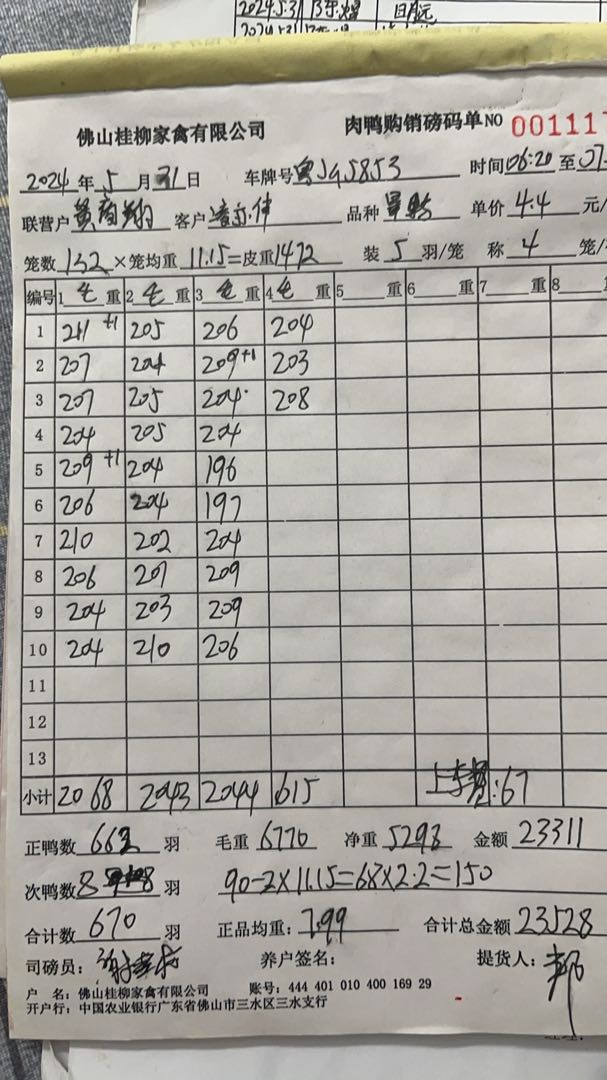 2024.5.31
日月元
佛山桂柳家禽有限公司 肉鸭购销磅码单 NO 001117
2024 年 5 月 31 日 车牌号 粤J95853 时间 06:20 至 07
联营户 黄 翔 客户 伟 品种 单价 4.4 元/
笼数 132 ×笼均重 11.15 =皮重 1472 装 5 羽/笼 称 4 笼/
编号 1 毛 重 2 毛 重 3 毛 重 4 毛 重 5 重 6 重 7 重 8
1 211 +1 205 206 204
2 207 204 209 +1 203
3 207 205 204 208
4 204 205 204
5 209 +1 204 196
6 206 204 197
7 210 202 204
8 206 207 209
9 204 203 209
10 204 210 206
11
12
13
小计 2068 2043 2044 615 上车 :67
正鸭数 662 羽 毛重 6770 净重 5298 金额 23311
次鸭数 8 羽 90-2×11.15=68×2.2=150
合计数 670 羽 正品均重: 7.99 合计总金额 23528
司磅员: 养户签名: 提货人: 邦
户 名: 佛山桂柳家禽有限公司 账号: 444 401 010 400 169 29
开户行: 中国农业银行广东省佛山市三水区三水支行